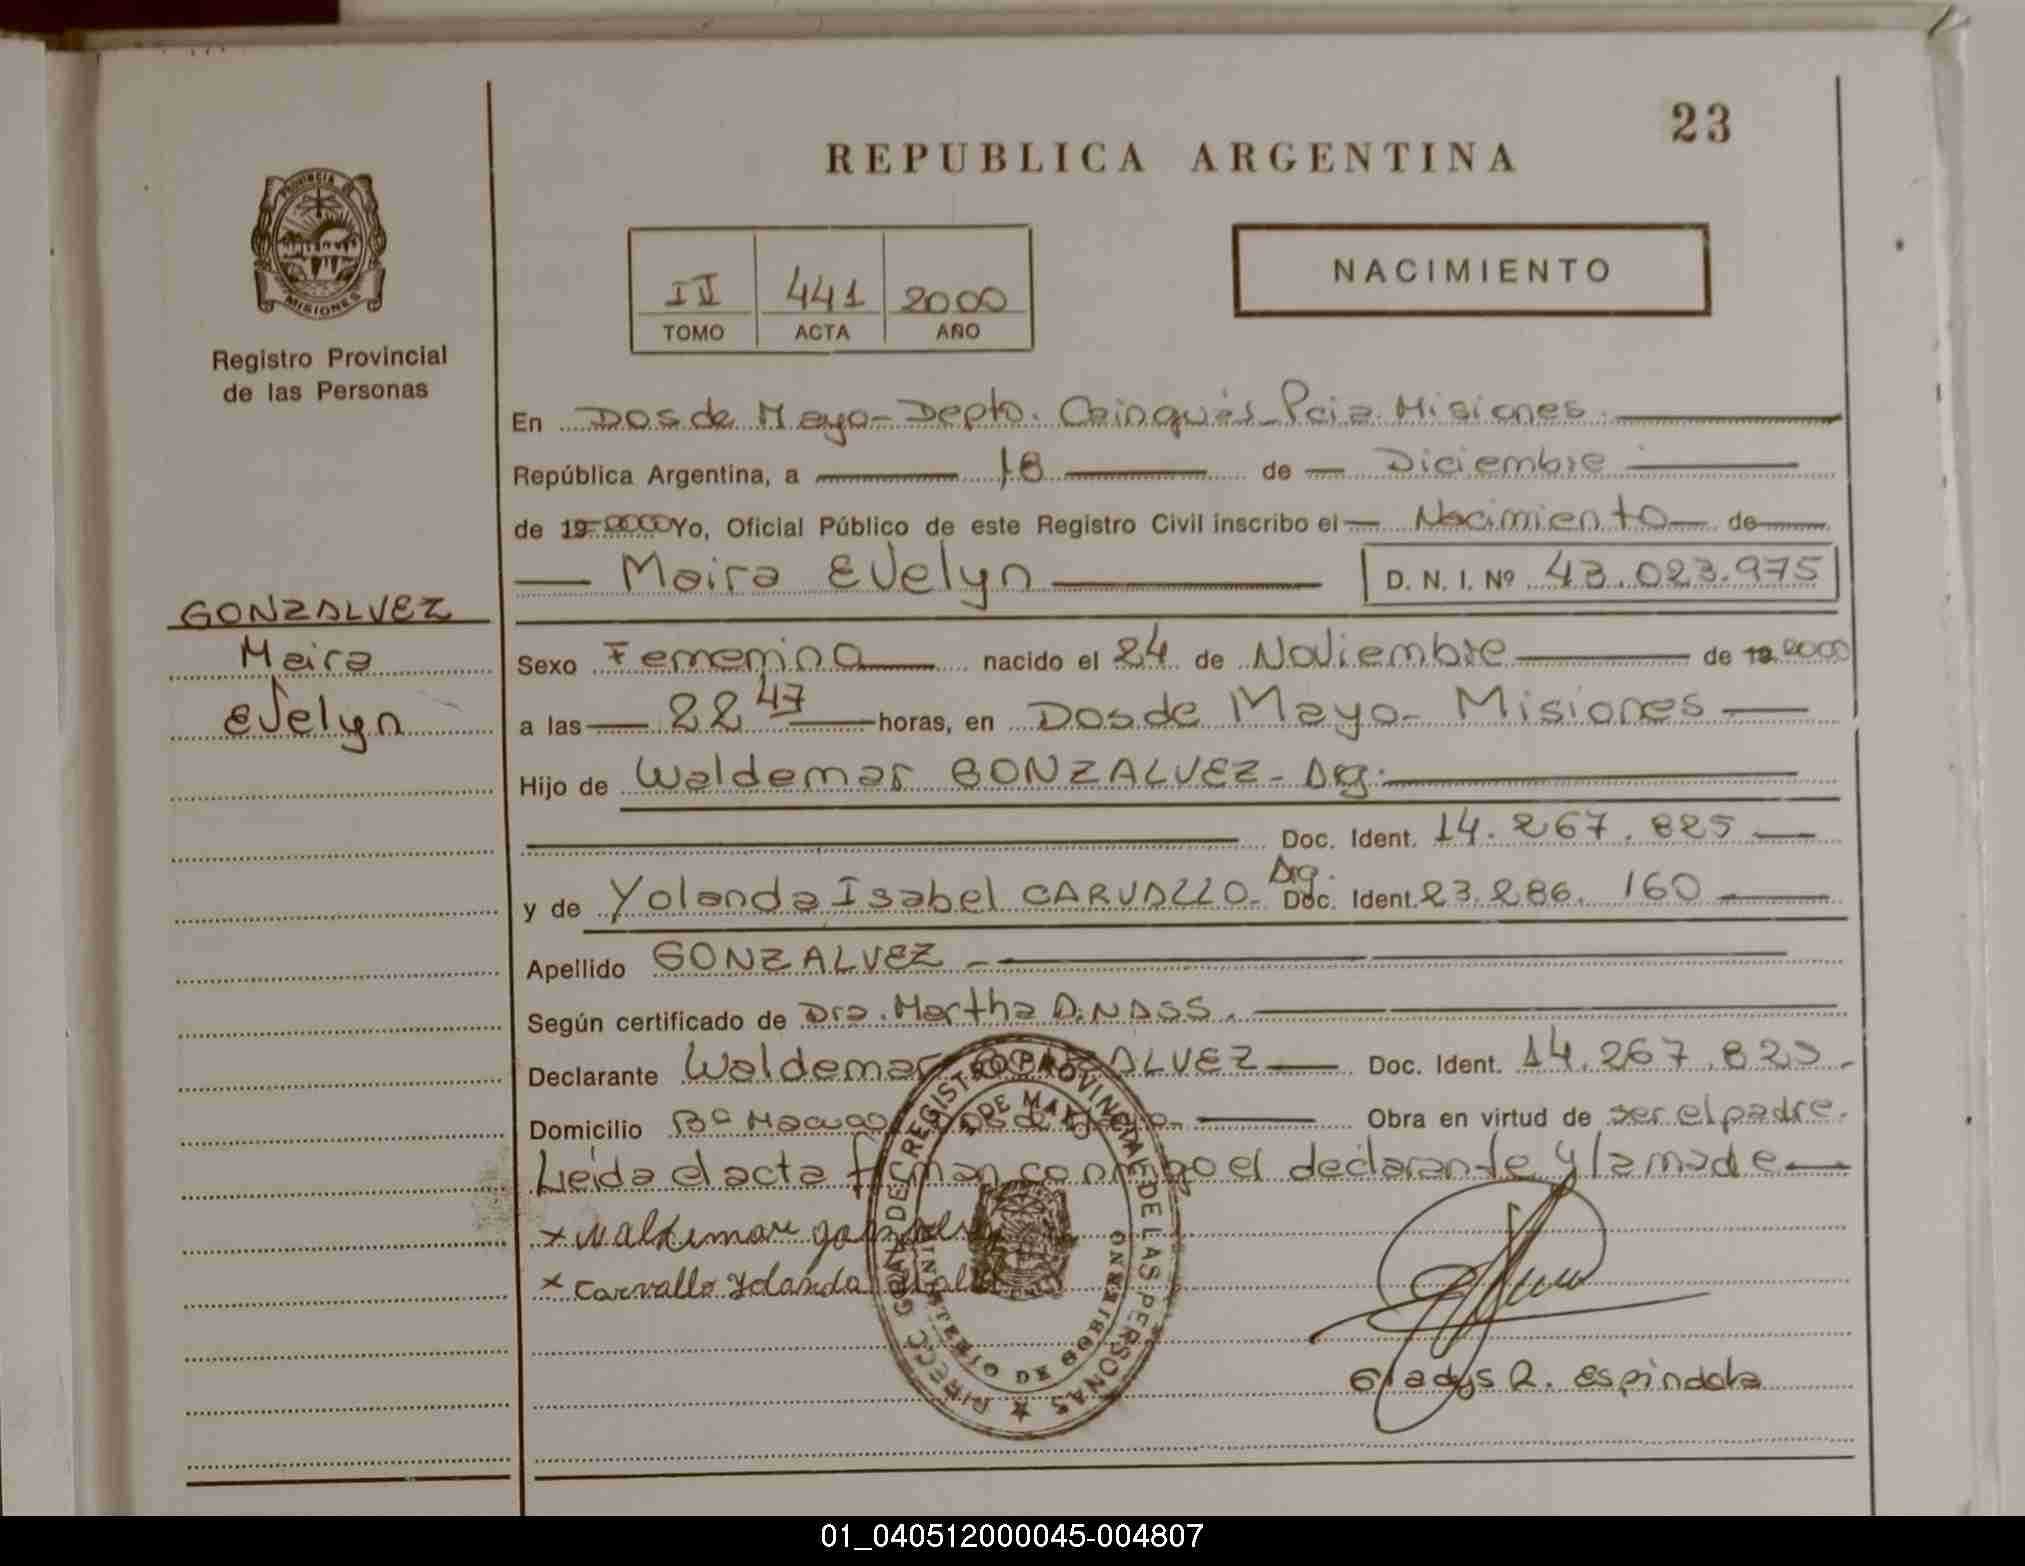 23
REPUBLICA ARGENTINA
PROVINCIA DE
MISIONES
Registro Provincial
de las Personas
NACIMIENTO
441 2000
TOMO ACTA AÑO
En Dos de Mayo - Depto. Cainguás - Pcia. Misiones.
República Argentina, a 18 de Diciembre
de 19 2000 Yo, Oficial Público de este Registro Civil inscribo el Nacimiento de
Maira Evelyn D. N. I. Nº 43.023.975
GONZALVEZ
Maira
Evelyn
Sexo Femenino nacido el 24 de Noviembre de 19 2000
a las 22 47 horas, en Dos de Mayo - Misiones
Hijo de Waldemar GONZALVEZ - Arg.
Doc. Ident. 14.267.825
y de Yolanda Isabel CARVALLO - Arg. Doc. Ident. 23.286.160
Apellido GONZALVEZ -
Según certificado de Dra. Martha D. NASS.
Declarante Waldemar GONZALVEZ Doc. Ident. 14.267.825.-
Domicilio Bº Dos de Mayo Obra en virtud de ser el padre.
Leida el acta firman conmigo el declarante y la madre
x Waldemar
x Carvallo Yolanda
DIRECC. GRAL. DEL REGISTRO PROVINCIAL DE LAS PERSONAS
DE MAYO
MINISTERIO DE GOBIERNO
Gladys R. Espindola
01_040512000045-004807